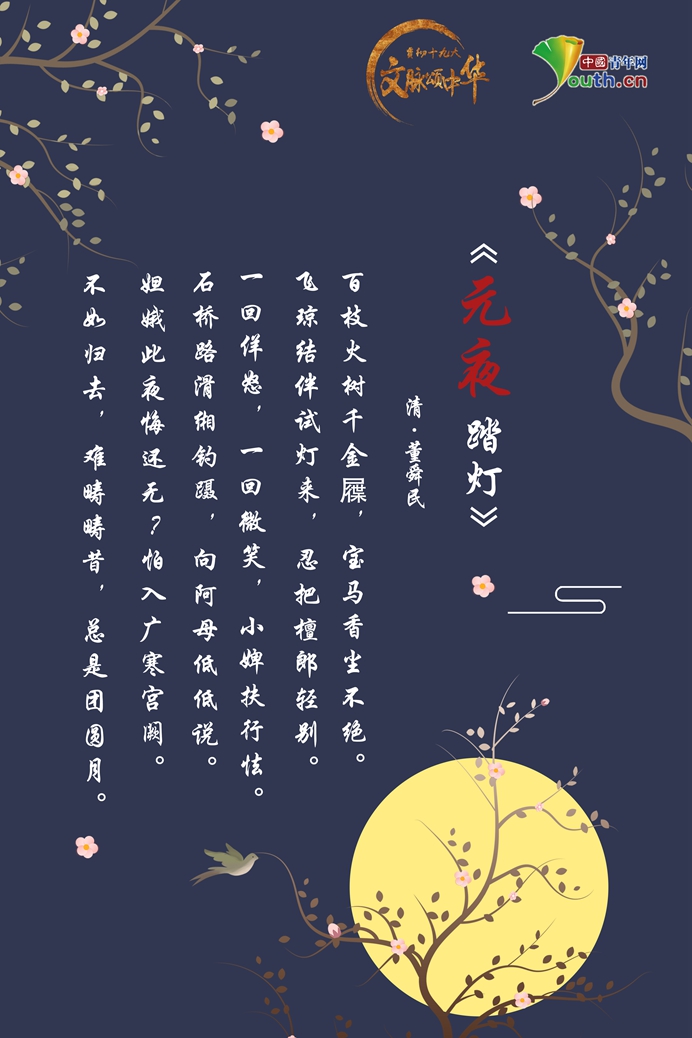 喜迎十九大
文脉颂中华
中國青年网
Youth.cn
《元夜踏灯》
清·董舜民
百枝火树千金屧，宝马香尘不绝。
飞琼结伴试灯来，忍把檀郎轻别。
一回佯怒，一回微笑，小婢扶行怯。
石桥路滑缃钩蹑，向阿母低低说。
姮娥此夜悔还无？怕入广寒宫阙。
不如归去，难畴畴昔，总是团圆月。